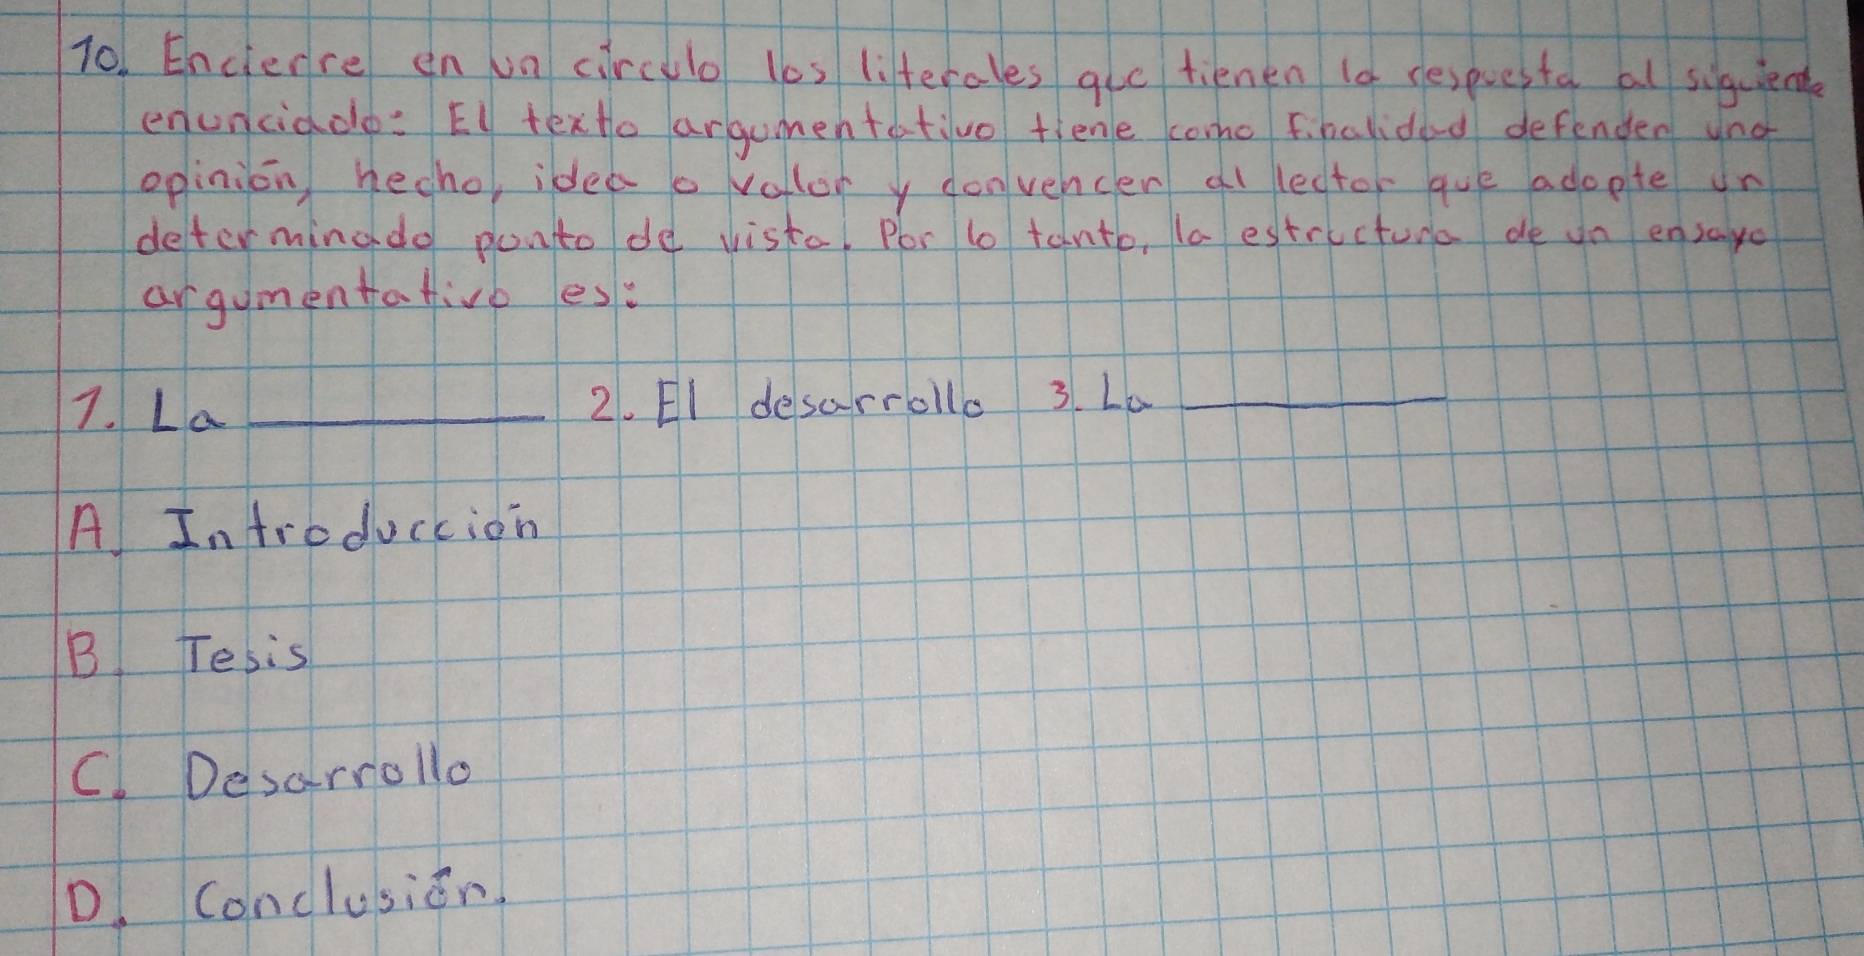 10. Encierre en un circulo los literales que tienen la respuesta al siguiente
enunciado: El texto argumentativo tiene como finalidad defender una
opinión, hecho, idea o valor y convencer al lector que adopte un
determinado punto de vista. Por lo tanto, la estructura de un ensayo
argumentativo es:
1. La __________ 2. El desarrollo 3. La __________
A. Introducción
B. Tesis
C. Desarrollo
D. Conclusión.